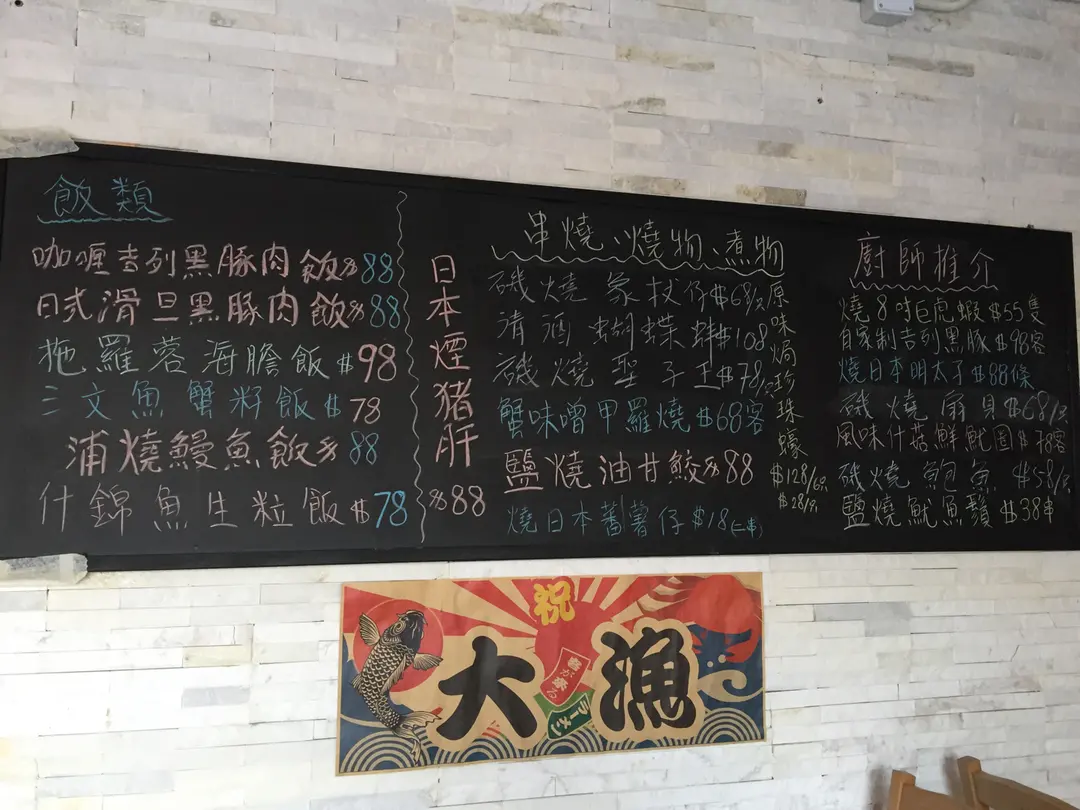 飯類
咖喱吉列黑豚肉飯$88
日式滑旦黑豚肉飯$88
拖羅蓉海膽飯$98
三文魚蟹籽飯$78
浦燒鰻魚飯$88
什錦魚生粒飯$78
日本煙猪肝
$88
串燒、燒物、煮物
磯燒象杖仔$68/只
清酒蝴蝶蚌$108
磯燒聖子王$78/只
蟹味噌甲羅燒$68客
鹽燒油甘鮫$88
燒日本蕃薯仔$18(二串)
原味焗珍珠蠔
$128/6只
$28/只
廚師推介
燒8吋巨虎蝦$55隻
自家制吉列黑豚$98客
燒日本明太子$88條
磯燒扇貝$68/只
風味什菇鮮魷囯$78客
磯燒鮑魚$58/只
鹽燒魷魚鬚$38串
祝
大漁
客が来る
ラーメン